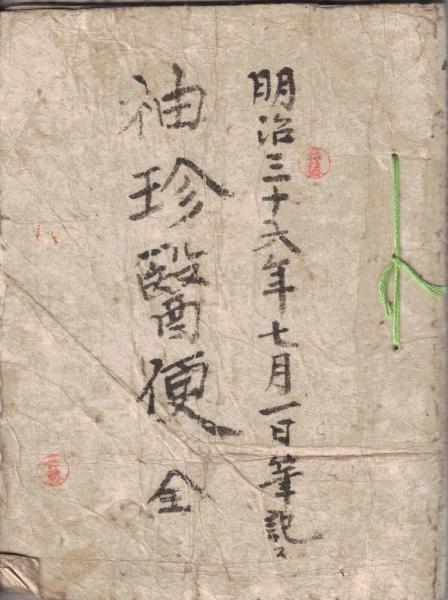 明治三十六年七月一日筆記ス
袖珍醫便 全